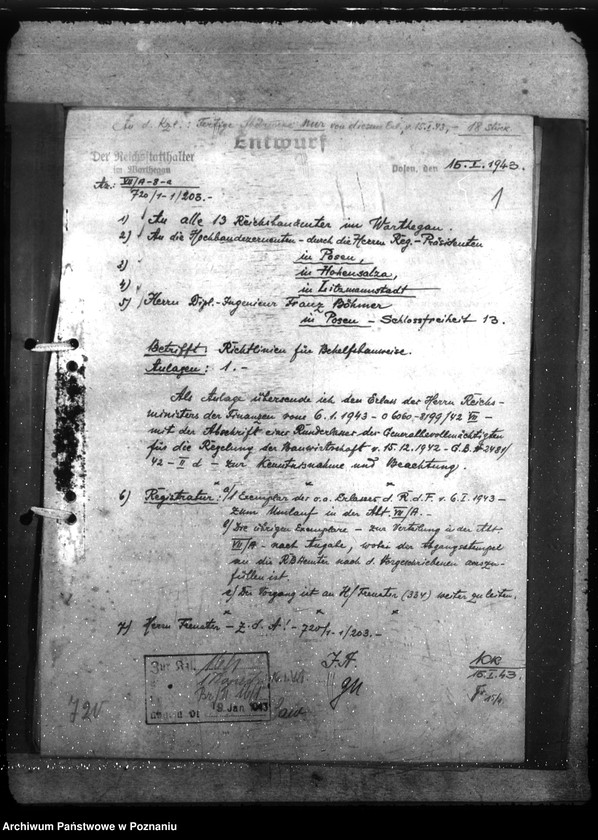 Zu d. Kzt.: Fertige Abdrucke nur von diesem Ent. v. 15.I.43, - 18 Stück
Entwurf
Der Reichsstatthalter
im Warthegau
Posen, den 15.I.1943.
Az.: VII/A-8-a
720/1-1/203.-
1
1) An alle 13 Reichsbauämter im Warthegau.
2) An die Hochbaudezernenten - durch die Herrn Reg.-Präsidenten
in Posen,
3) in Hohensalza,
4) in Litzmannstadt
5) Herrn Dipl.-Ingenieur Franz Böhmer
in Posen - Schlossfreiheit 13.
Betrifft: Richtlinien für Behelfsbauweise.
Anlagen: 1.-
Als Anlage übersende ich den Erlass des Herrn Reichs-
ministers der Finanzen vom 6.1.1943 - O 6060-8199/42 VII -
mit der Abschrift eines Runderlasses des Generalbevollmächtigten
für die Regelung der Bauwirtschaft v. 15.12.1942 - G.B. 2481/
42 - II d - zur Kenntnisnahme und Beachtung.
6) Registratur: a) 1 Exemplar des o.a. Erlasses d. R.d.F. v. 6.I.1943 -
zum Umlauf in der Abt. VII/A. -
b) Die übrigen Exemplare - zur Verteilung in der Abt.
VII/A - nach Angabe, wobei der Abgangsstempel
an die RBämter nach d. Vorgeschriebenen auszu-
füllen ist.
c) Der Vorgang ist an H/ Fenster (334) weiter zu leiten.
7) Herrn Fenster - z.d.A! - 720/1-1/203.-
I.A
15.I.43.
Zur Kzl.
19. Jan. 1943
720
Archiwum Państwowe w Poznaniu